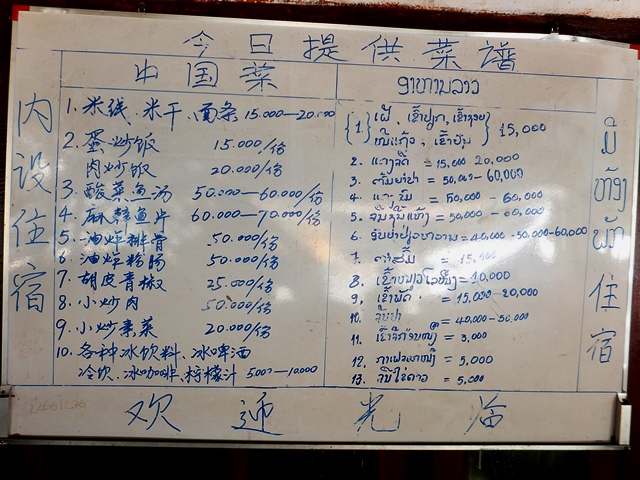 今日提供菜谱
中国菜
ອາຫານລາວ
内设住宿
1. 米线、米干、面条 15.000—20.000
2. 蛋炒饭 15.000/份
肉炒饭 20.000/份
3. 酸菜鱼汤 50.000—60.000/份
4. 麻辣鱼片 60.000—70.000/份
5. 油炸排骨 50.000/份
6. 油炸粉肠 50.000/份
7. 胡皮青椒 25.000/份
8. 小炒肉 50.000/份
9. 小炒素菜 20.000/份
10. 各种冰饮料、冰啤酒
冷饮、冰咖啡、柠檬汁 5000—10.000
{1.} ເຝີ, ເຂົ້າປຽກ, ເຂົ້າຊອຍ
ໝີ່ແກ້ວ, ເຂົ້າປຸ້ນ } 15,000
2. = 15,000 20,000
3. ຕົ້ມຍຳປາ = 50,000–60,000
4. = 50,000 – 60,000
5. = 50,000 – 60,000
6. = 40,000 -50,000-60,000
7. = 15,000
8. = 10,000
9. ເຂົ້າຜັດ = 15,000–20,000
10. ຈືນປາ = 40,000–50,000
11. = 3,000
12. = 5,000
13. ຈືນໄຂ່ດາວ = 5,000
ມີ
ຫ້ອງ
ພັກ
住宿
欢迎光临